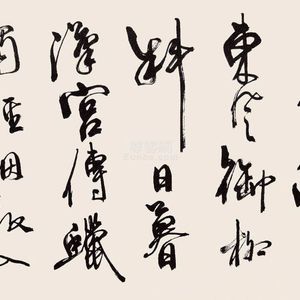 東風御柳
斜日暮
漢宮傳蠟
燭輕烟散入